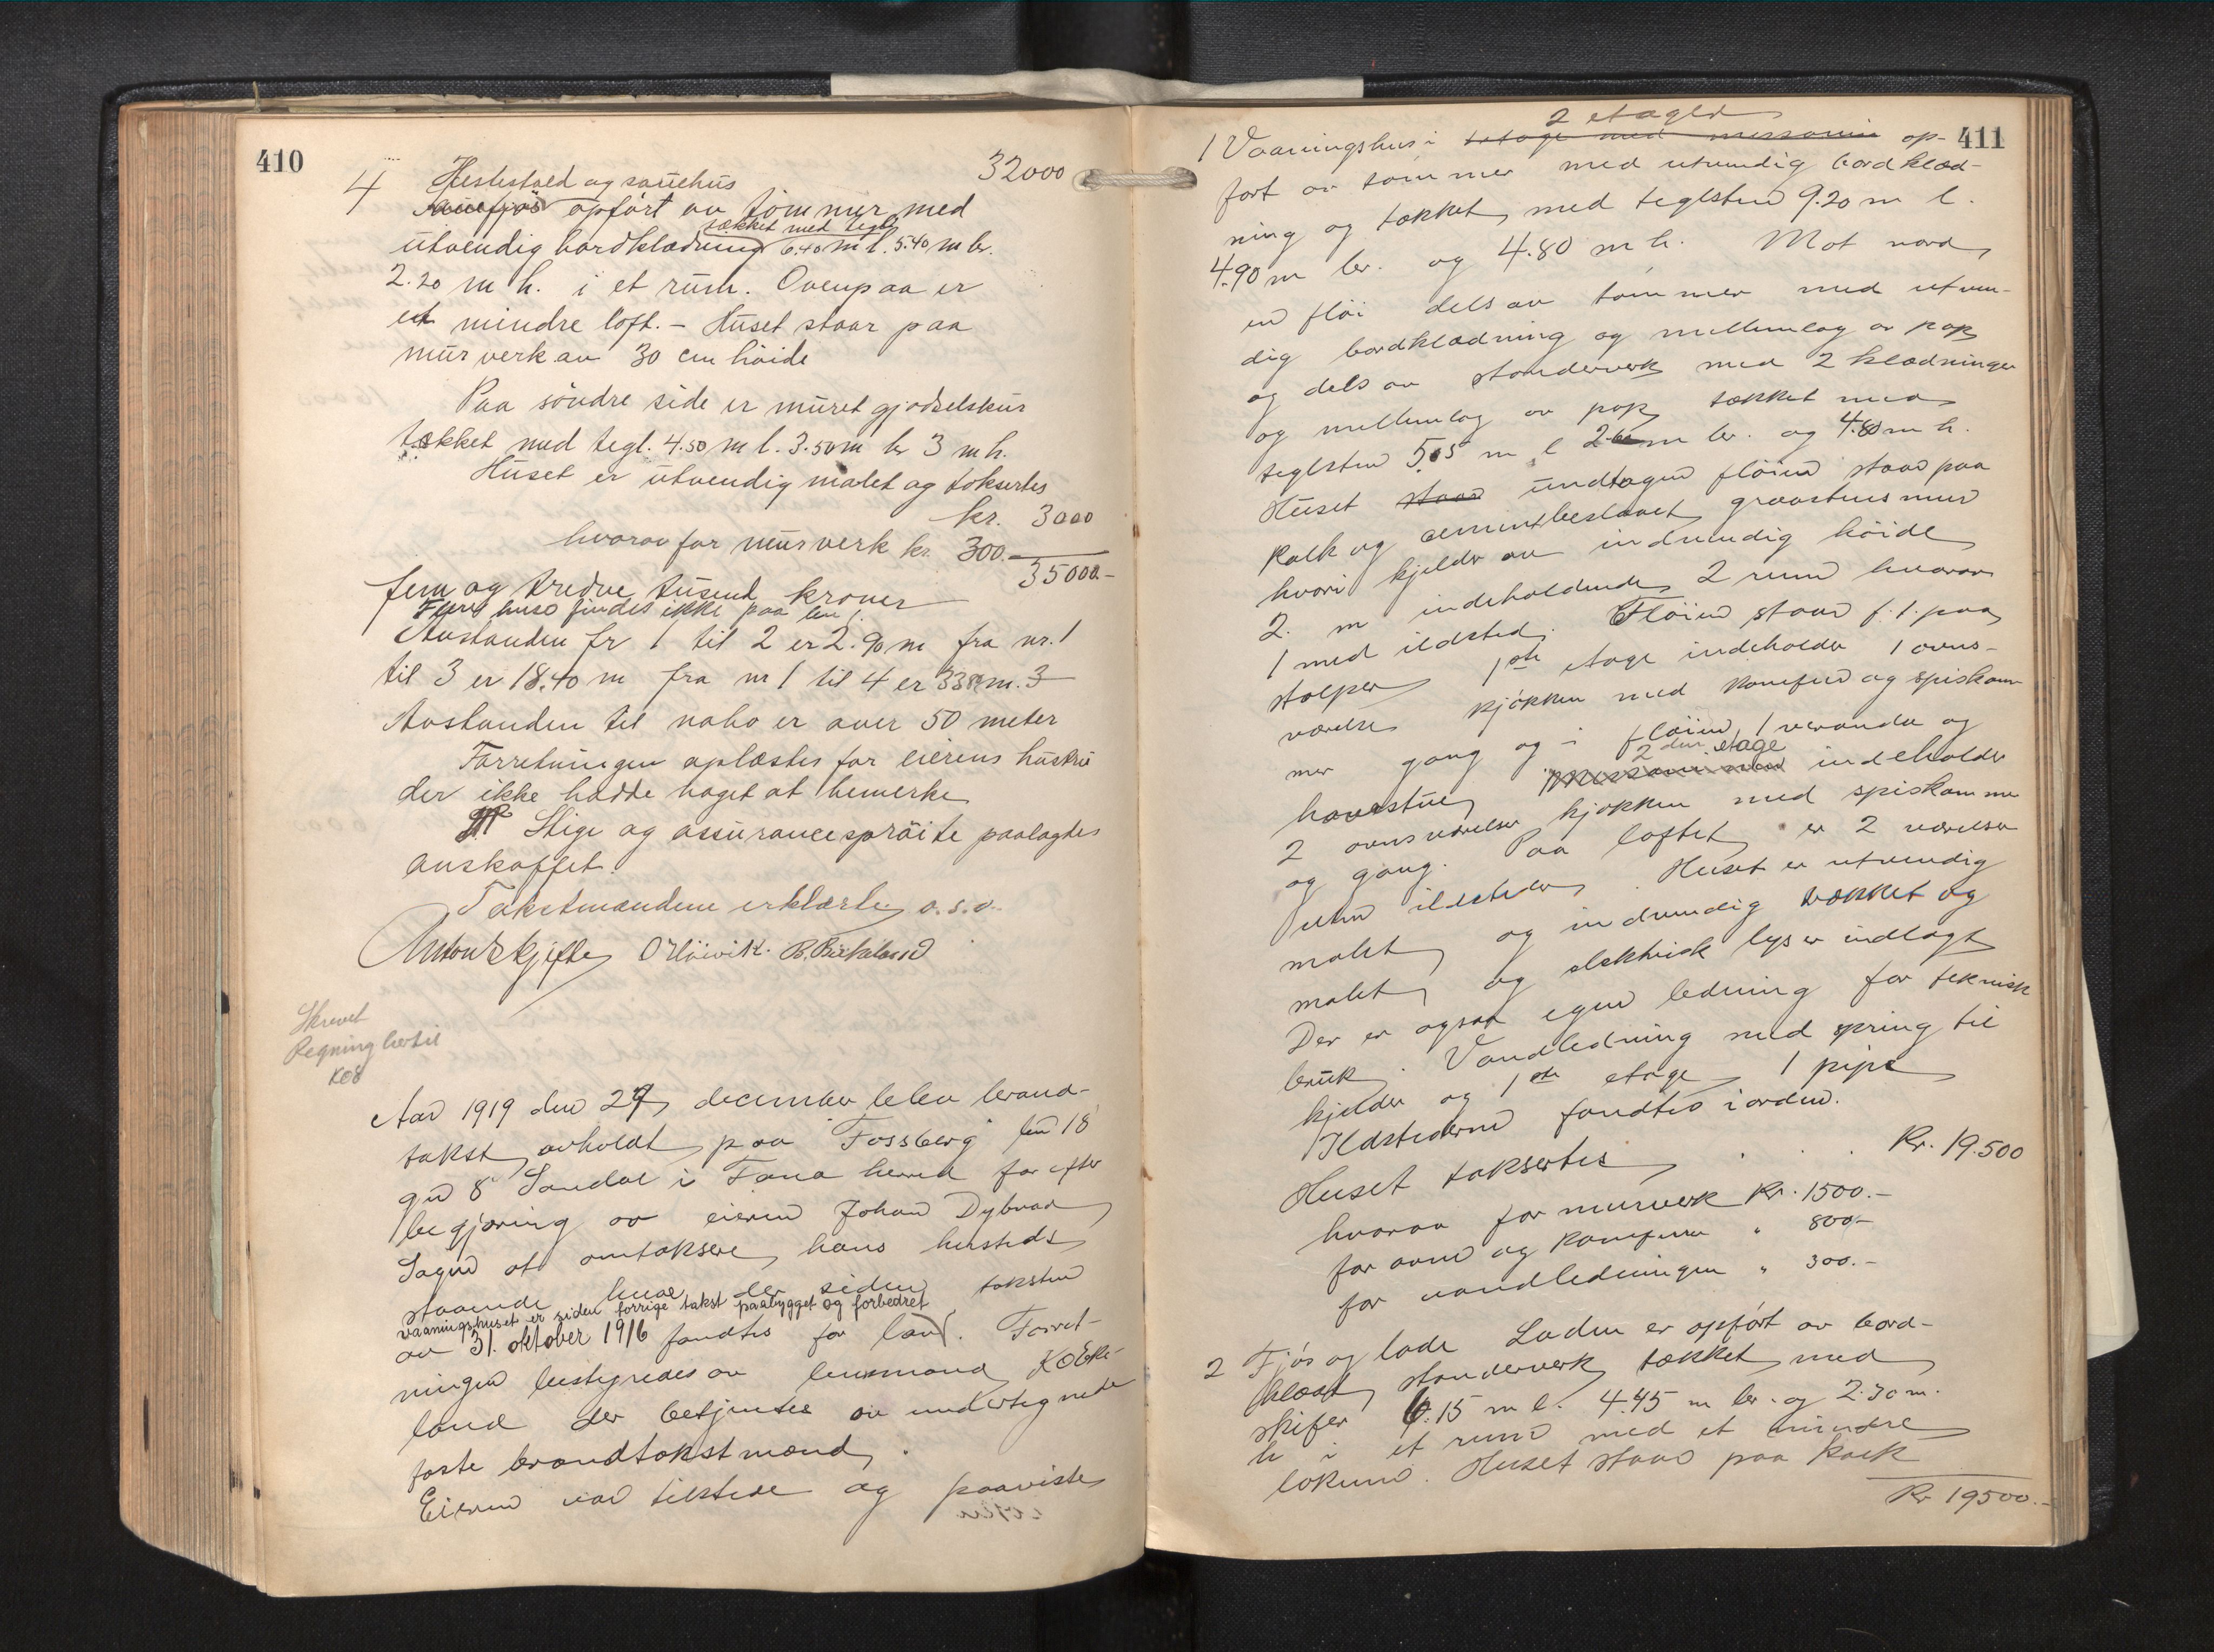 410
32000
4 Hestestald og sauehus
Sauefjøs opført av tømmer med
tækket med tegl
utvendig bordklædning 6.40 m l. 5.40 m br.
2.20 m h. i et rum. Ovenpaa er
et mindre loft. – Huset staar paa
murverk av 30 cm høide
Paa søndre side er muret gjødselshus
tækket med tegl. 4.50 m l. 3.50 m br 3 m h.
Huset er utvendig malet og taksertes
kr. 3000
hvorav for murverk kr. 300.–
35000.–
fem og tredve tusend kroner
Flere huse findes ikke paa bru
Avstanden fr 1 til 2 er 2.90 m fra nr. 1
til 3 er 18.40 m fra nr 1 til 4 er m.
Avstanden til nabo er over 50 meter
Forretningen oplæstes for eierens hustru
der ikke hadde noget at bemerke
Stige og assurancesprøite paalagdes
anskaffet.
Takstmændene erklærte o.s.v.
Anton Skjefte O Høivik. B. Birkeland
Skrevet
Regning hertil
KOB
Aar 1919 den 27 december blev brand-
takst avholdt paa "Fossberg" bn 18
gn 8 Sandal i Fana herred for efter
begjæring av eieren Johan Dybvad
Sagen at omtaksere hans husteds
staaende huse der siden taksten
vaaningshuset er siden forrige takst paabygget og forbedret
av 31. oktober 1916 fandtes for lav. Forret-
ningen bestyredes av lensmand K O Birke-
land der betjentes av undertegnede
faste brandtakstmænd.
Eieren var tilstede og paaviste
411
2 etager
1 Vaaningshus i 1 etage med messanin op-
ført av tømmer med utvendig bordklæd-
ning og tækket med teglsten 9.20 m l.
4.90 m br. og 4.80 m h. Mot nord
en fløi dels av tømmer med utven-
dig bordklædning og mellemlag av pap
og dels av standerverk med 2 klædninger
og mellemlag av pap tækket med
teglsten 5.05 m l m br. og 4.80 m h.
Huset staar undtagen fløien staar paa
kalk og cementbeslaaet graastensmur
hvori kjelder av indvendig høide
2. m indeholdende 2 rum hvorav
1 med ildsted. Fløien staar f. t. paa
stolper 1ste etage indeholder 1 ovns-
værelse kjøkken med komfur og spiskam-
mer gang og i fløien 1 veranda og
2den etage
havestue messaninen indeholder
2 ovnsværelser kjøkken med spiskammer
og gang. Paa loftet er 2 værelser
uten ildsteder. Huset er utvendig
malet og indvendig trækket og
malet og elektrisk lys er indlagt
Der er ogsaa egen ledning for teknisk
bruk. Vandledning med spring til
kjelder og 1ste etage 1 pipe
Ildstederne fandtes i orden.
Huset taksertes . . Kr. 19.500
hvorav for murverk Kr. 1500.–
for ovne og komfurer " 800.–
for vandledningen " 300.–
2 Fjøs og lade Laden er opført av bord-
klædt standerverk tækket med
skifer 6.15 m l. 4.45 m br. og 2.30 m.
h i et rum med et mindre
lokum. Huset staar paa kalk
Kr 19500.–